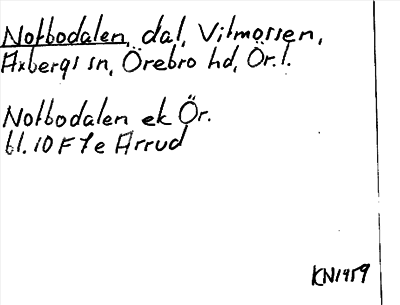 Notbodalen, dal, Vitmossen,
Axbergs sn, Örebro hd, Ör. l.
Notbodalen ek Ör.
bl. 10 F 7 e Arrud
KN1959